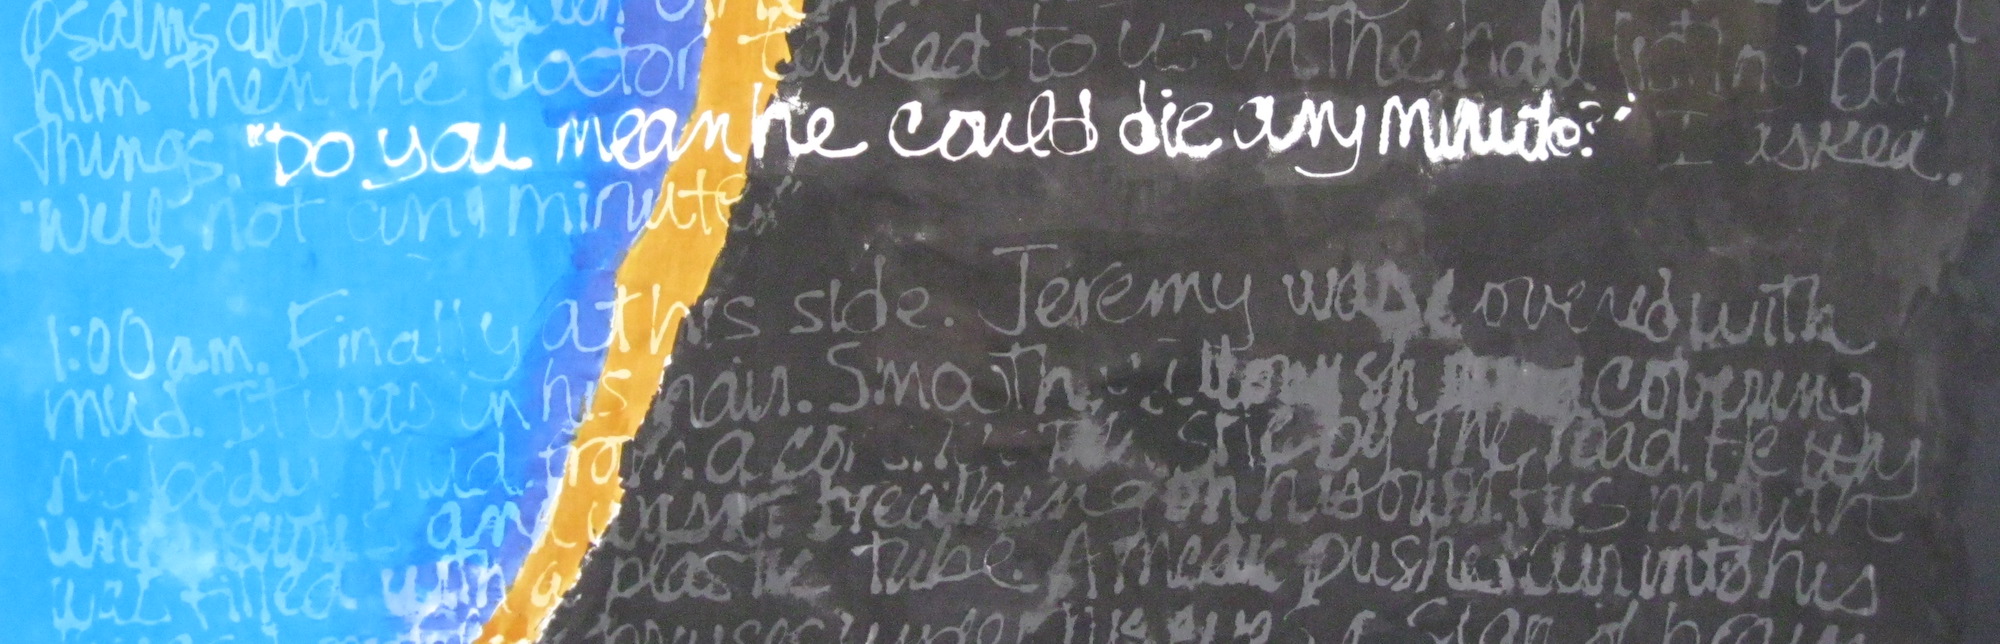 psalms aloud to
him. Then the doctor talked to us in the hall
Things. "Do you mean he could die any minute?" I asked.
"Well, not any minute"
1:00 a.m. Finally at his side. Jeremy was covered with
mud. It was in his hair. Smooth covering
his body. Mud from a by the road. He was
unconscious - and wasn't breathing on his own. His mouth
was filled with a plastic tube. A pushed air into his
bruises under his eyes a sign of brain